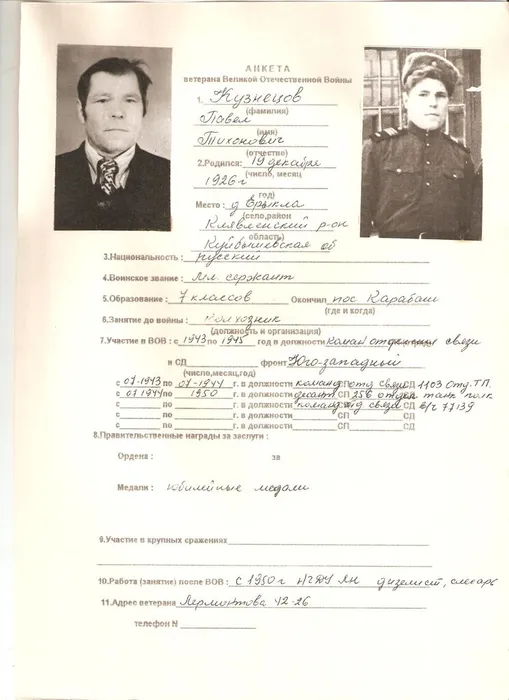 АНКЕТА
ветерана Великой Отечественной Войны
1. Кузнецов
(фамилия)
Павел
(имя)
Тихонович
(отчество)
2.Родился: 19 декабря
(число, месяц
1926 г
год)
Место: д Ерыкла
(село,район
Клявлинский р-он
область)
Куйбышевская об
3.Национальность: русский
4.Воинское звание: Мл. сержант
5.Образование: 7 классов Окончил пос Карабаш
(где и когда)
6.Занятие до войны: Колхозник
(должность и организация)
7.Участие в ВОВ: с 1943 по 1945 год в должности коман отделения связи
в СД фронт Юго-западный
(число,месяц,год)
с 07-1943 по 07-1944 г. в должности команд СП отд связи СД 1103 Отд. Т.П.
с 07 1944 по 1950 г. в должности десант СП 256 отдел танк полк
с по г. в должности команд СП отд связи СД в/ч 77139
с по г. в должности СП СД
8.Правительственные награды за заслуги:
Ордена: за
Медали: юбилейные медали
9.Участие в крупных сражениях
10.Работа (занятие) после ВОВ: с 1950 г НГДУ ЛН дизелист, слесарь
11.Адрес ветерана Лермонтова 42-26
телефон N